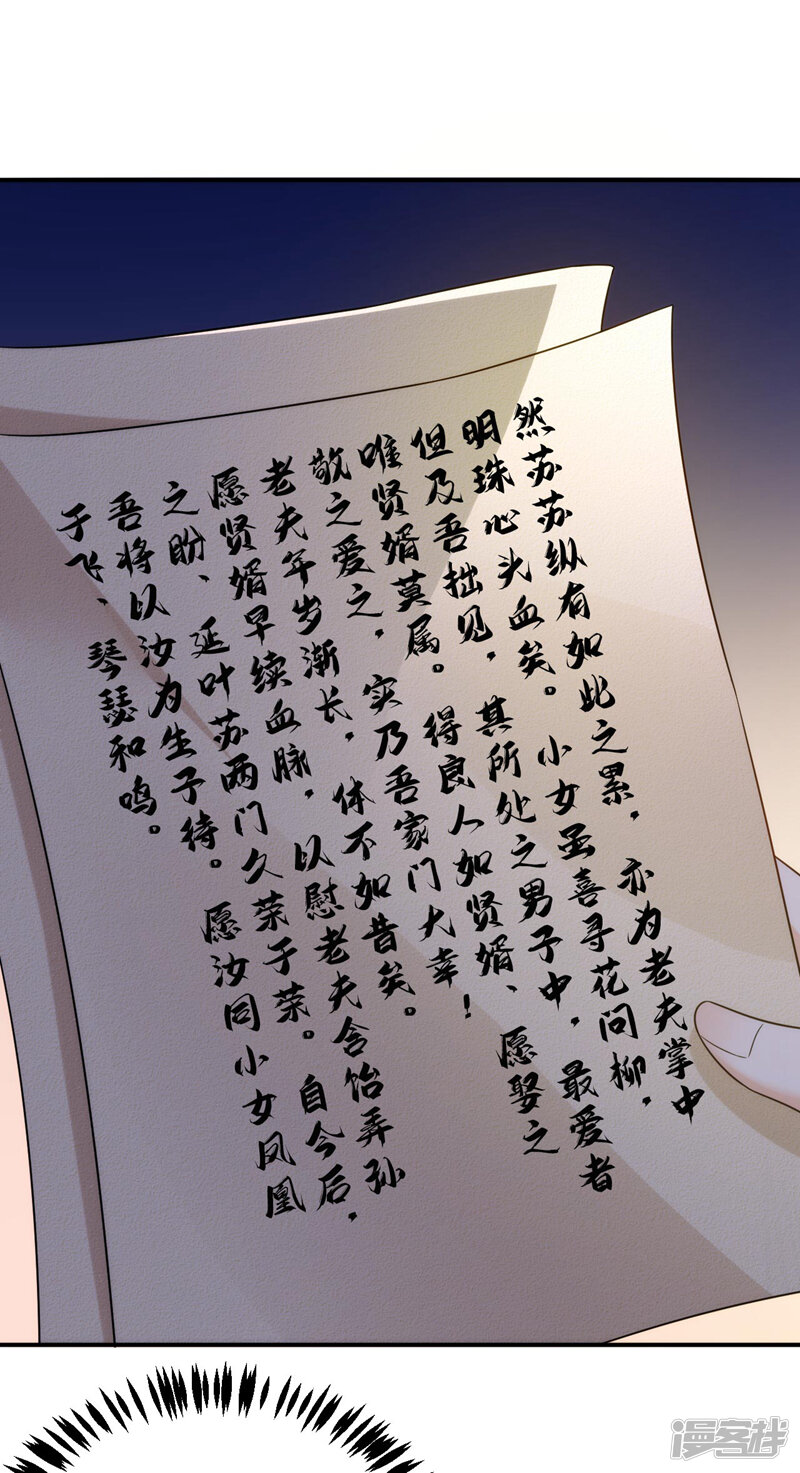 然苏苏纵有如此之累，亦为老夫掌中
明珠心头血矣。小女虽喜寻花问柳，
但及吾拙见，其所处之男子中，最爱者
唯贤婿莫属。得良人如贤婿、愿娶之
敬之爱之，实乃吾家门大幸！
老夫年岁渐长，体不如昔矣。
愿贤婿早续血脉，以慰老夫含饴弄孙
之盼、延叶苏两门久荣于荣。自今后，
吾将以汝为生子待。愿汝同小女凤凰
于飞、琴瑟和鸣。
漫客栈